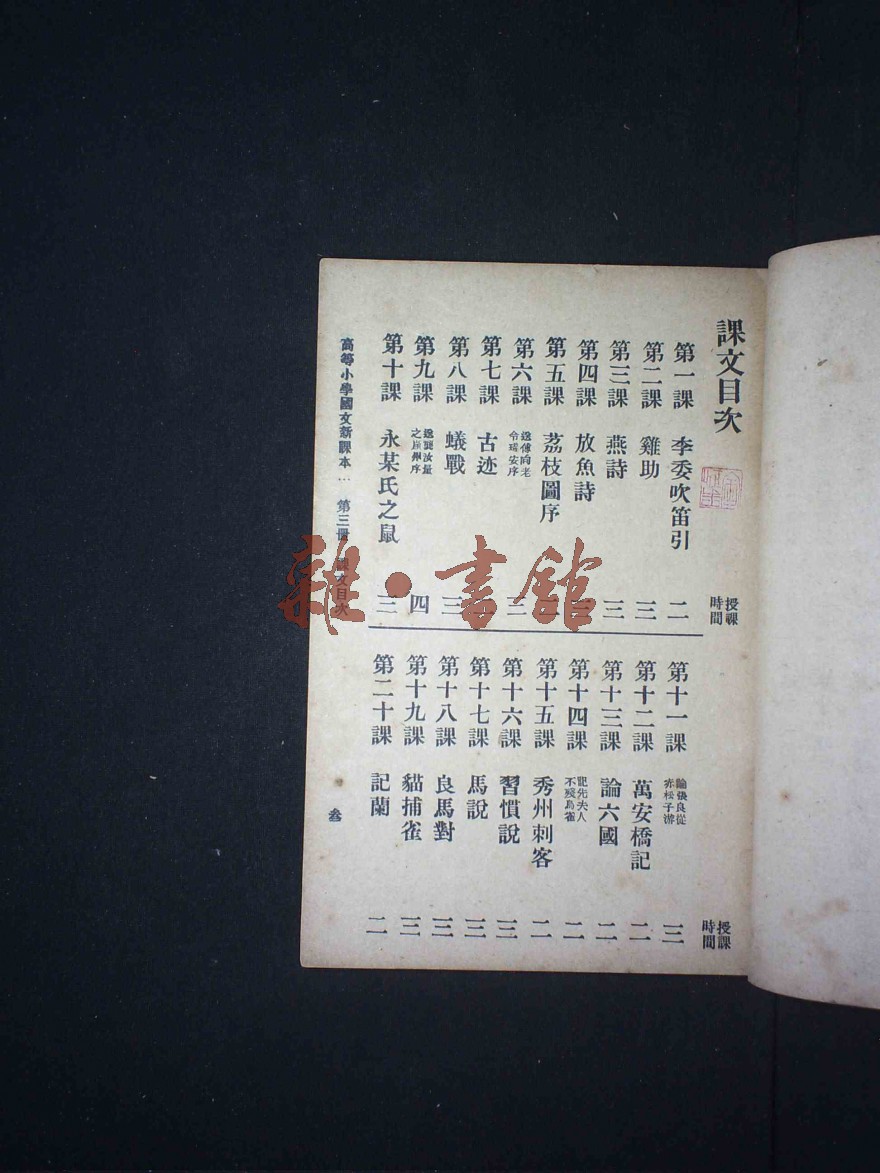 課文目次
授課時間
第一課 李委吹笛引 二
第二課 雞助 三
第三課 燕詩 三
第四課 放魚詩
第五課 荔枝圖序
第六課 送傅向老令瑞安序 三
第七課 古迹
第八課 蟻戰 三
第九課 送龔汝量之廣州序 四
第十課 永某氏之鼠 三
授課時間
第十一課 論張良從赤松子游 三
第十二課 萬安橋記 二
第十三課 論六國 二
第十四課 記先夫人不殘鳥雀 二
第十五課 秀州刺客 二
第十六課 習慣說 三
第十七課 馬說 三
第十八課 良馬對 三
第十九課 貓捕雀 三
第二十課 記蘭 二
高等小學國文新課本⋯ 第三冊 課文目次
叁
雜·書館